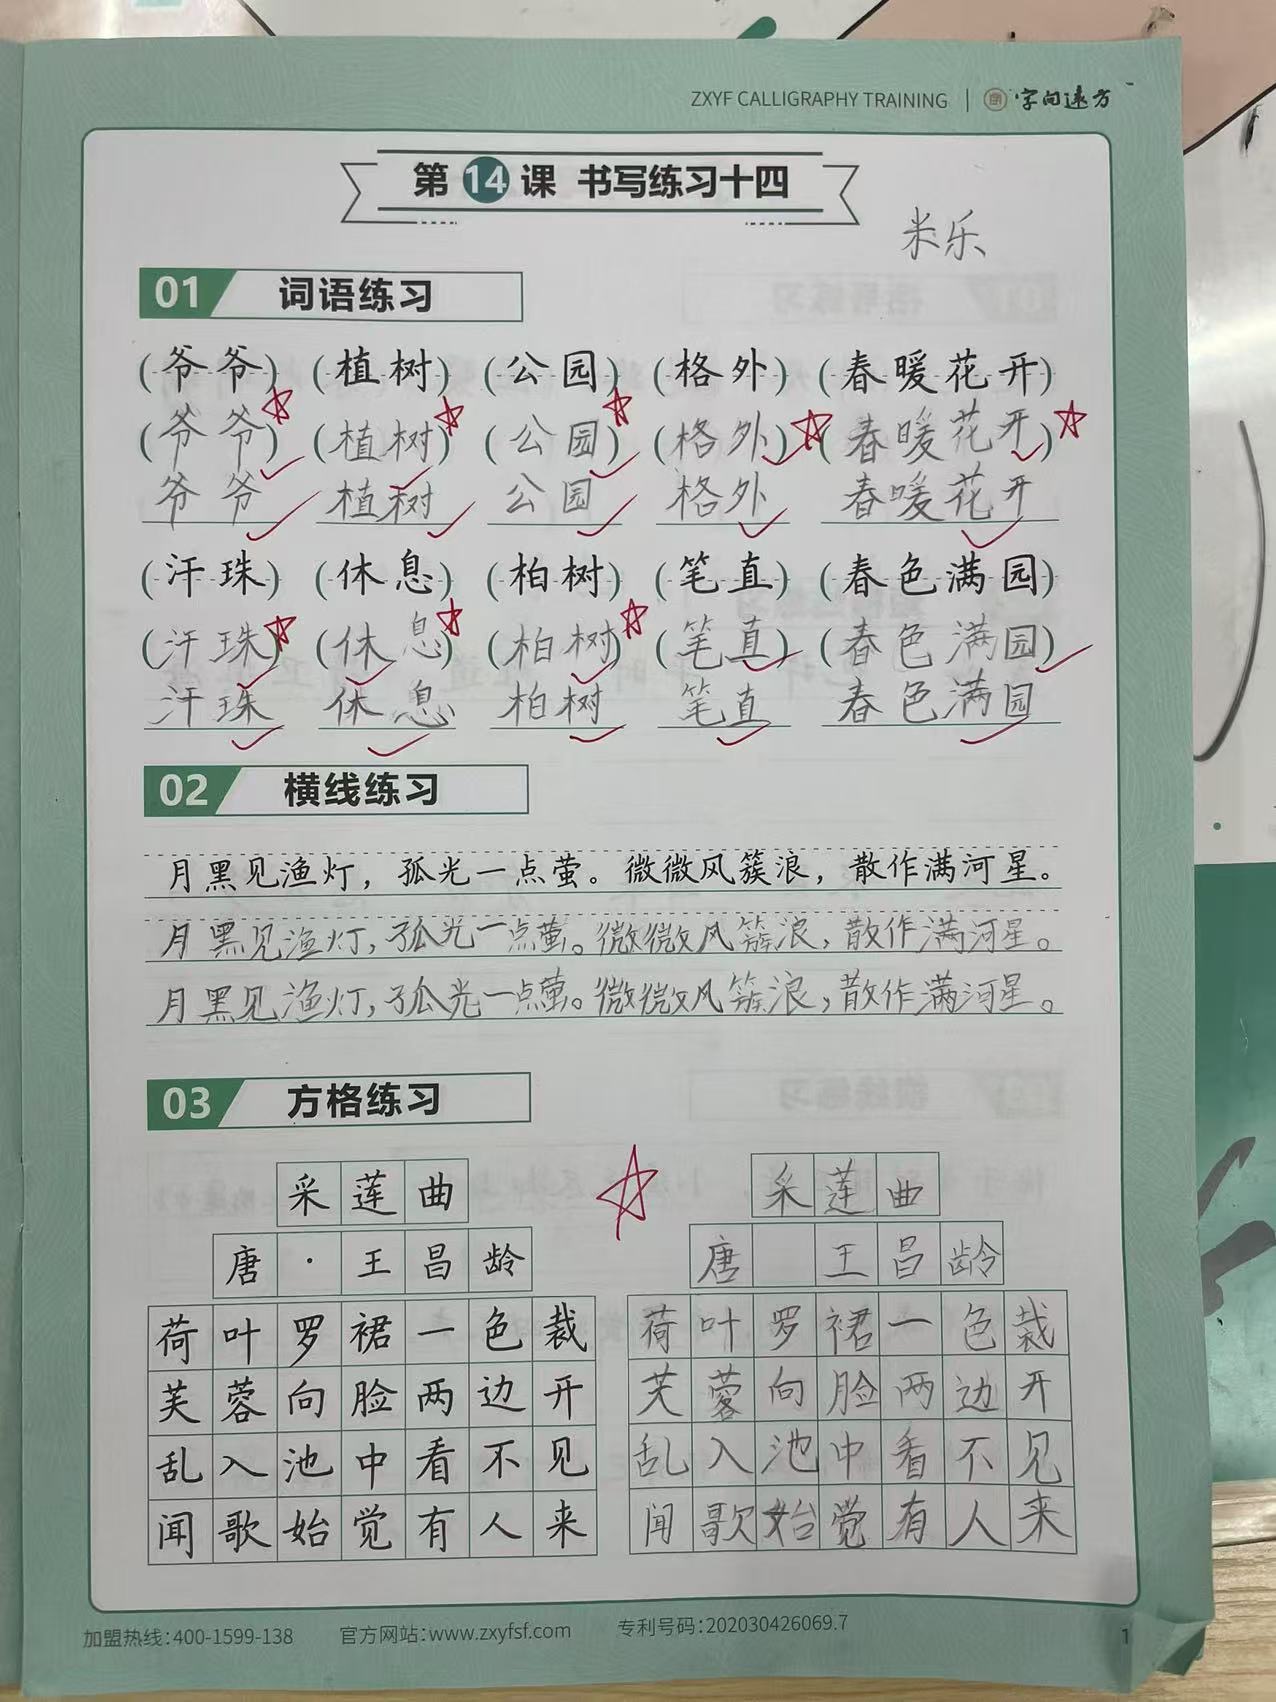 ZXYF CALLIGRAPHY TRAINING | 字向远方
第14课 书写练习十四
米乐
01 词语练习
(爷爷) (植树) (公园) (格外) (春暖花开)
(爷爷) (植树) (公园) (格外) (春暖花开)
爷爷 植树 公园 格外 春暖花开
(汗珠) (休息) (柏树) (笔直) (春色满园)
(汗珠) (休息) (柏树) (笔直) (春色满园)
汗珠 休息 柏树 笔直 春色满园
02 横线练习
月黑见渔灯，孤光一点萤。微微风簇浪，散作满河星。
月黑见渔灯，孤光一点萤。微微风簇浪，散作满河星。
月黑见渔灯，孤光一点萤。微微风簇浪，散作满河星。
03 方格练习
采莲曲
唐·王昌龄
荷叶罗裙一色裁
芙蓉向脸两边开
乱入池中看不见
闻歌始觉有人来
采莲曲
唐 王昌龄
荷叶罗裙一色裁
芙蓉向脸两边开
乱入池中看不见
闻歌始觉有人来
加盟热线:400-1599-138 官方网站:www.zxyfsf.com 专利号码:202030426069.7
1